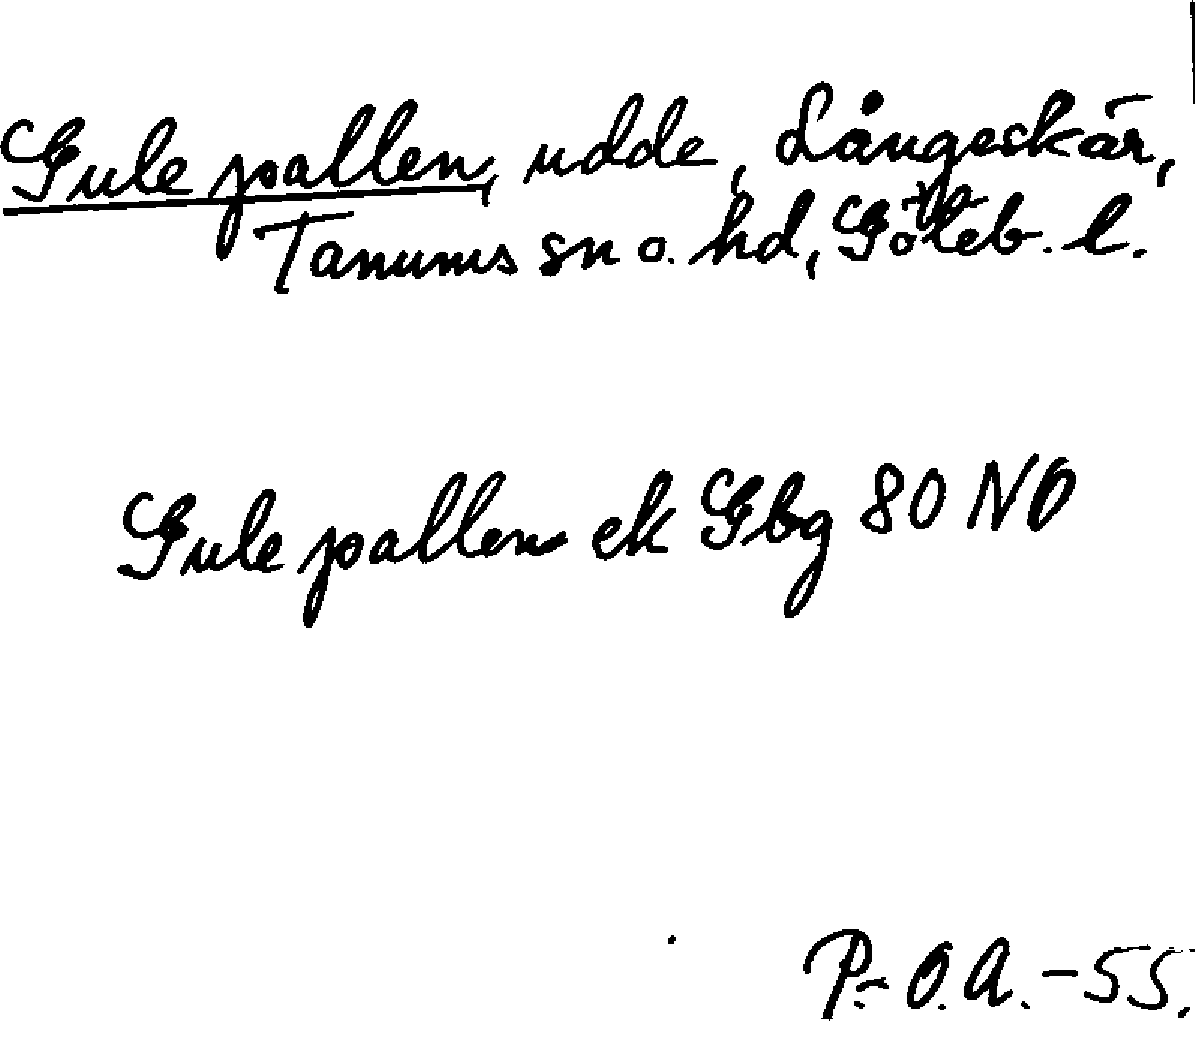 Gule pallen, udde, Långeskär,
Tanums sn o. hd, Göteb. l.
Gule pallen ek Gbg 80 NO
P-O.A.-55.